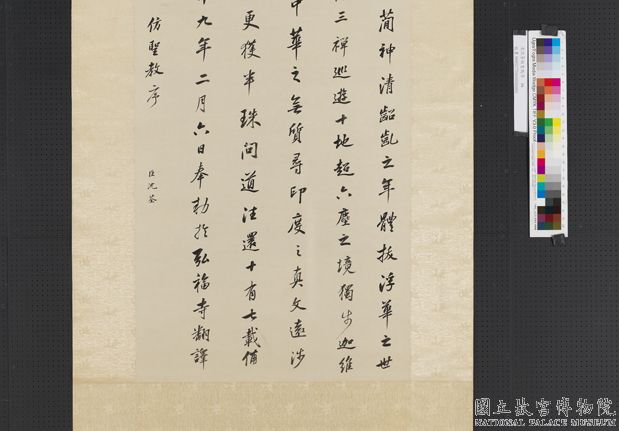 蕳神清齠齔之年體拔浮華之世
三禪巡遊十地超六塵之境獨步迦維
中華之無質尋印度之真文遠涉
更獲半珠問道往還十有七載備
九年二月六日奉勅於弘福寺翻譯
仿聖教序
臣沈荃
國立故宮博物院
NATIONAL PALACE MUSEUM